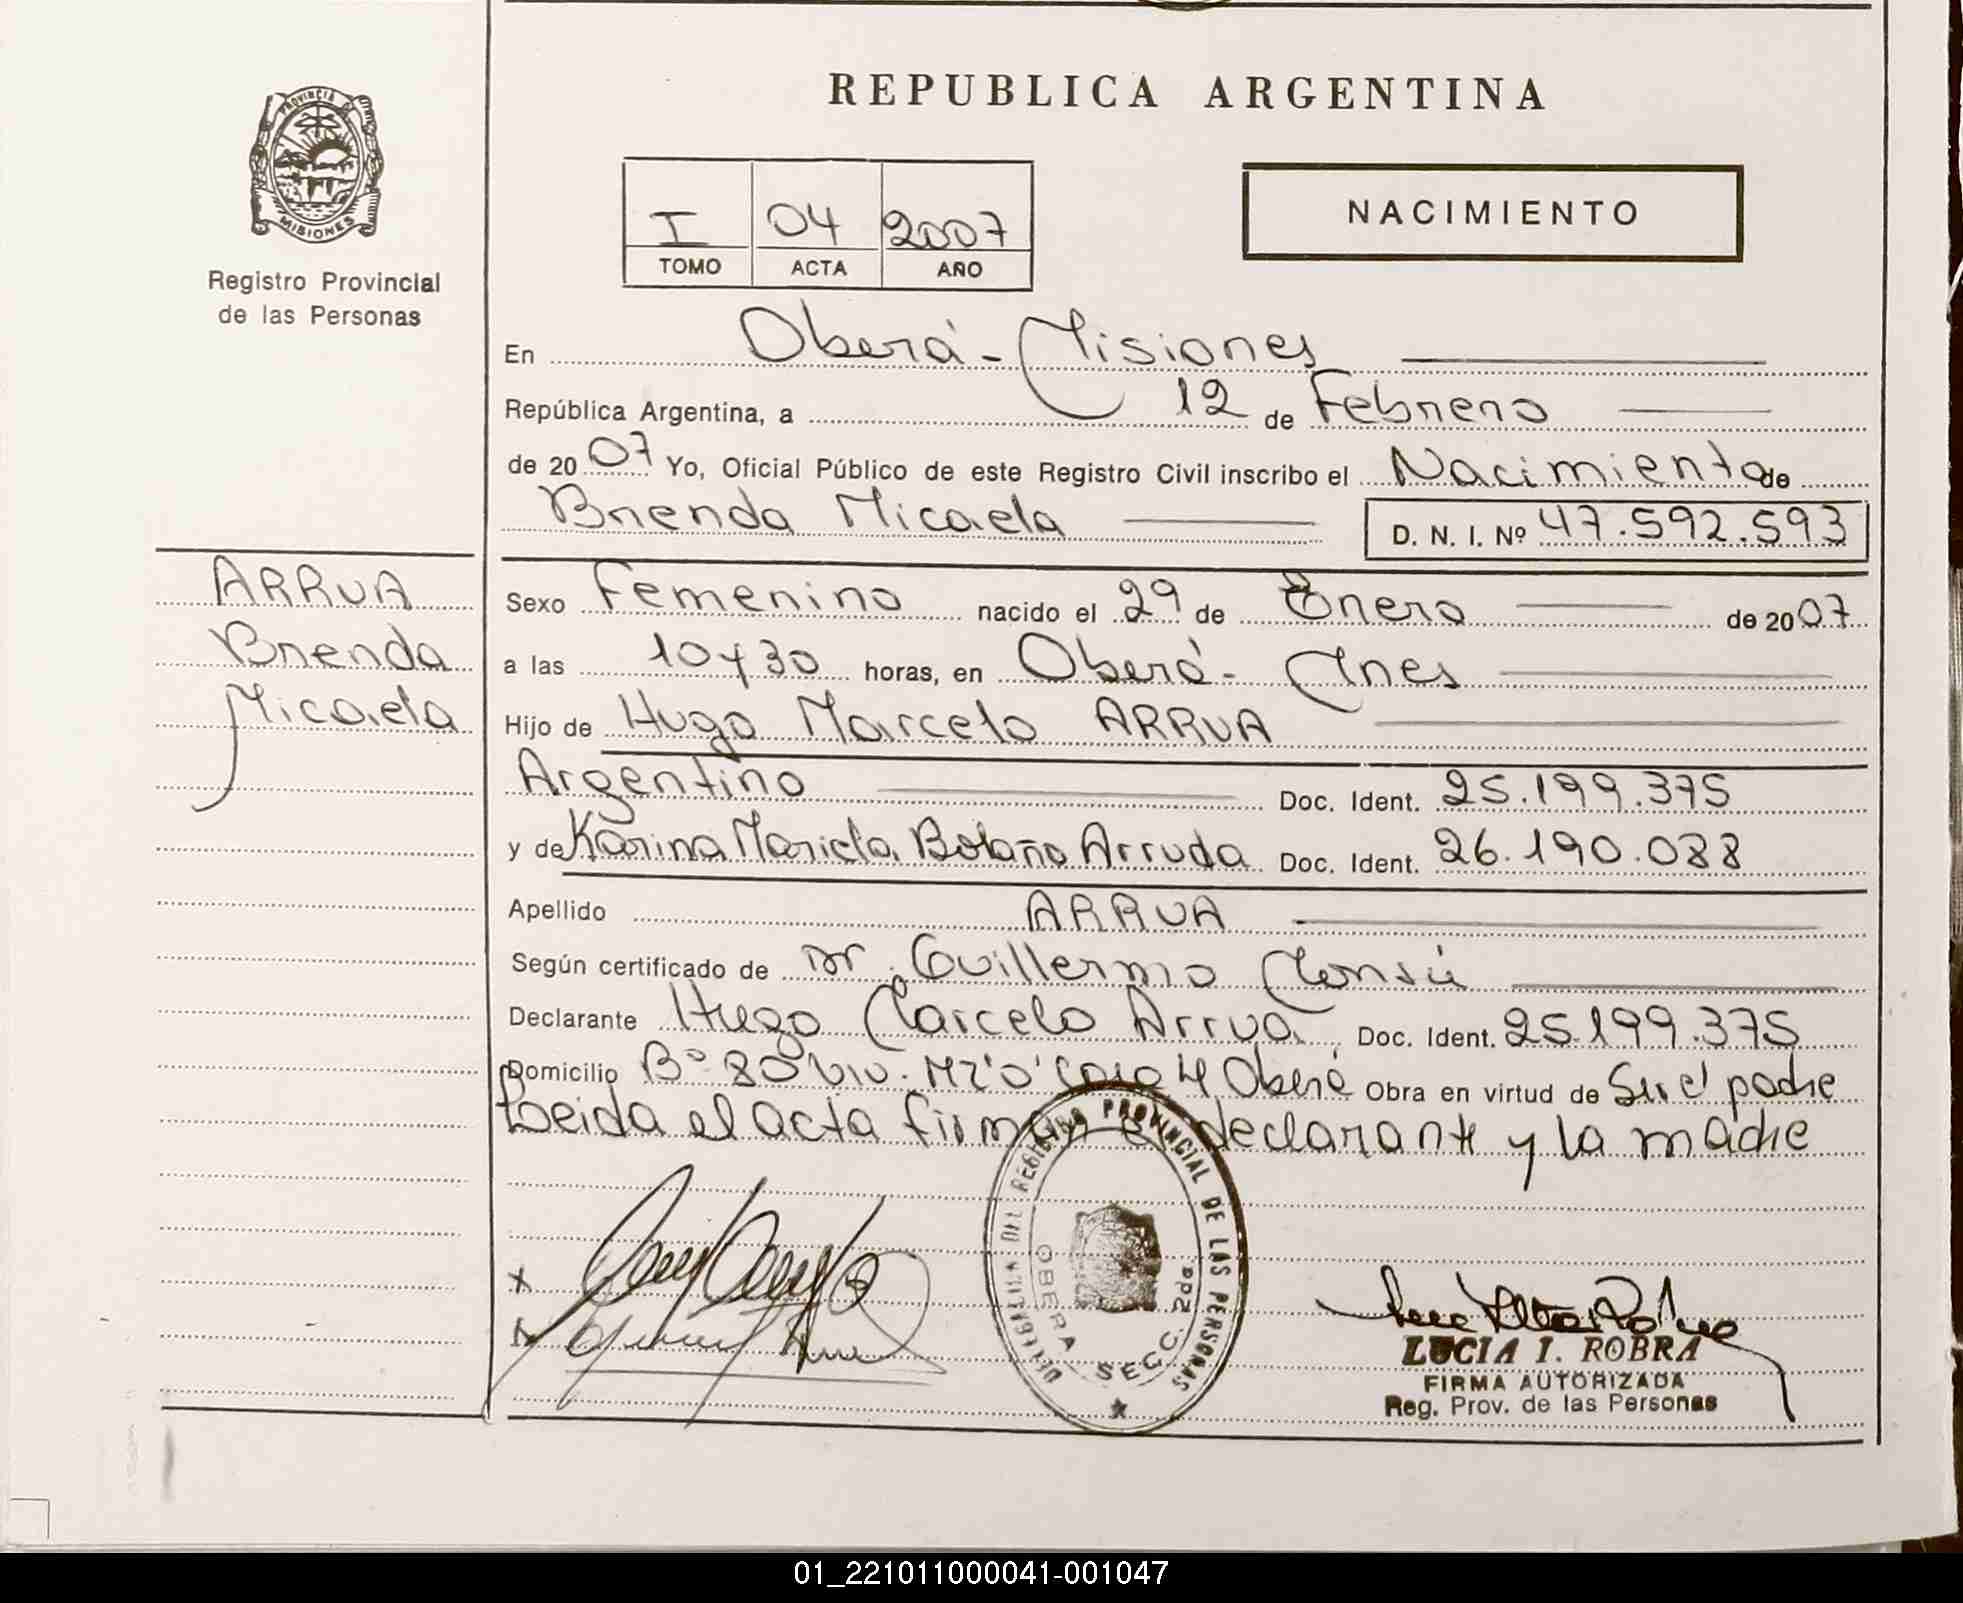 REPUBLICA ARGENTINA
PROVINCIA DE
MISIONES
Registro Provincial
de las Personas
I 04 2007
TOMO ACTA AÑO
NACIMIENTO
En Oberá - Misiones
República Argentina, a 12 de Febrero
de 2007 Yo, Oficial Público de este Registro Civil inscribo el Nacimiento de
Brenda Micaela D. N. I. Nº 47.592.593
ARRUA
Brenda
Micaela
Sexo Femenino nacido el 29 de Enero de 2007
a las 10 y 30 horas, en Oberá - Mnes
Hijo de Hugo Marcelo ARRUA
Argentino Doc. Ident. 25.199.375
y de Karina Mariela Bolaño Arruda Doc. Ident. 26.190.088
Apellido ARRUA
Según certificado de Dr. Guillermo
Declarante Hugo Marcelo Arrua Doc. Ident. 25.199.375
Domicilio Bº 80 viv. Mz 'O' Casa 4 Oberá Obra en virtud de Ser el padre
Leida el acta firman el declarante y la madre
DELEGACION DEL REGISTRO PROVINCIAL DE LAS PERSONAS
OBERA SECC. 2da.
LUCIA I. ROBRA
FIRMA AUTORIZADA
Reg. Prov. de las Personas
01_221011000041-001047